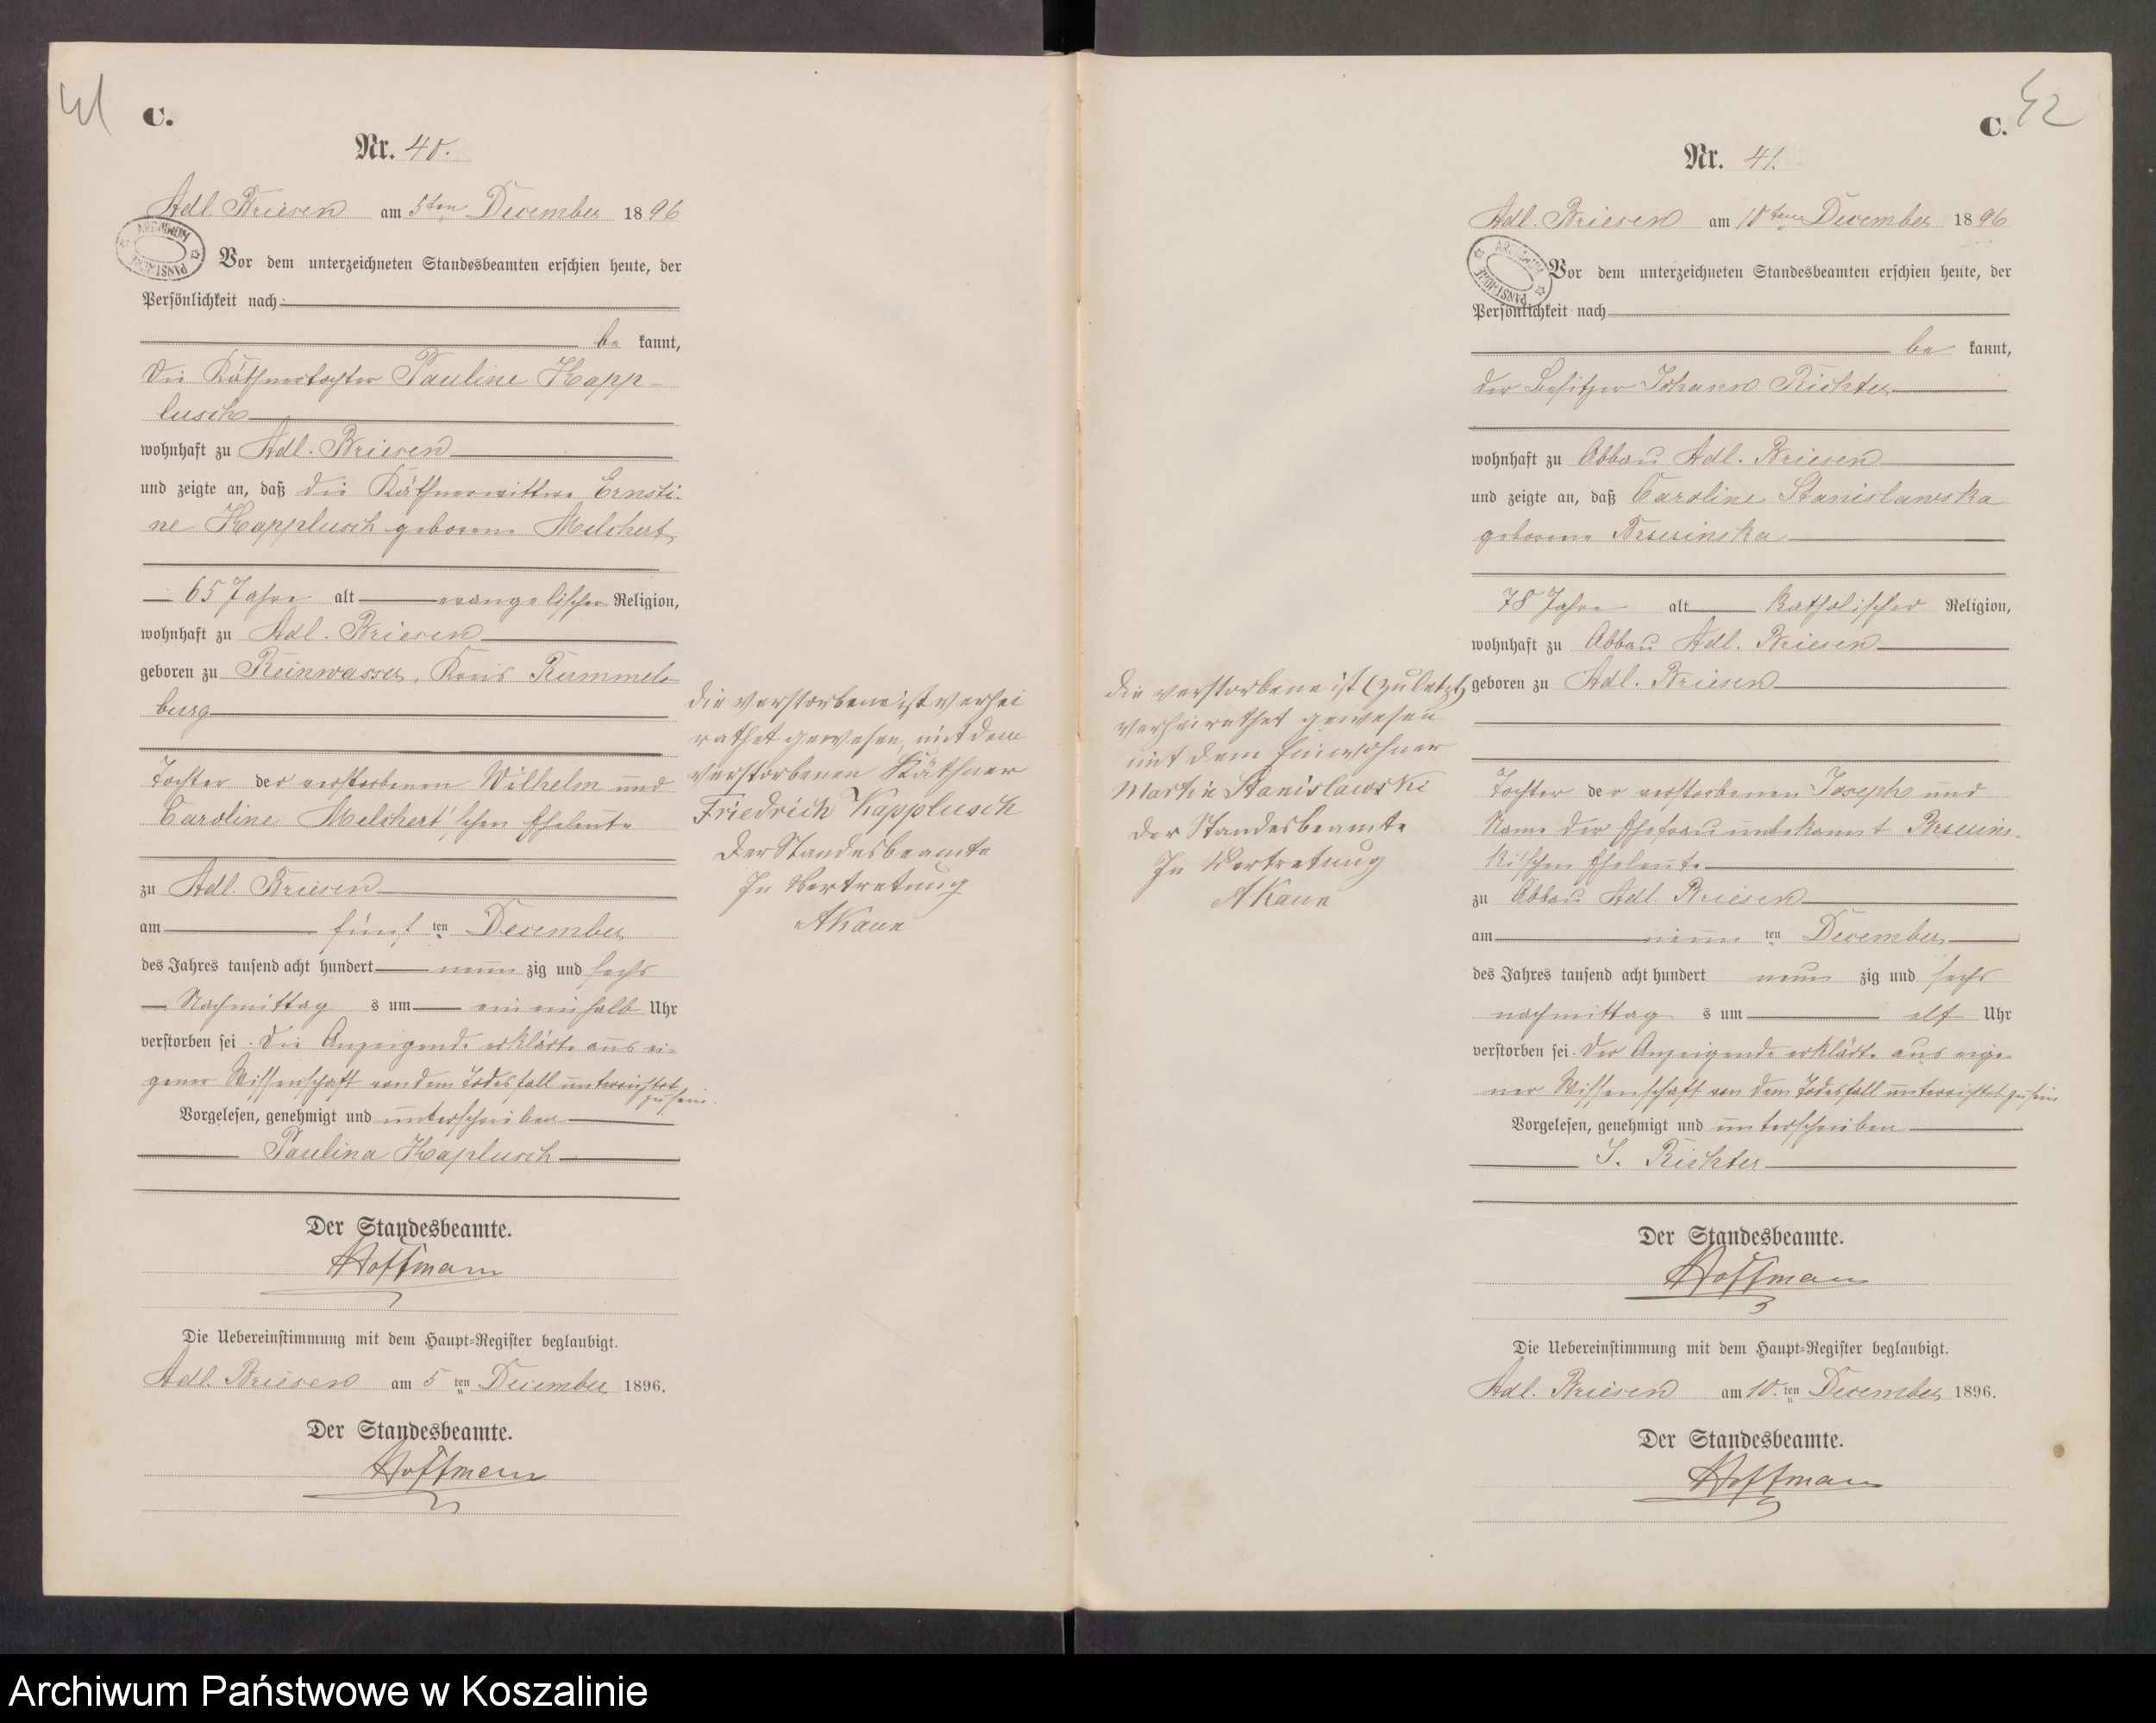 41
C.
Nr. 40.
Adl. Briesen am 5ten December 1896
ARCHIWUM PAŃSTWOWE
Vor dem unterzeichneten Standesbeamten erschien heute, der
Persönlichkeit nach
be kannt,
die Käthnertochter Pauline Kapp-
lusch
wohnhaft zu Adl. Briesen
und zeigte an, daß die Käthnerwittwe Ernsti-
ne Kapplusch geborene Melchert,
65 Jahre alt evangelischer Religion,
wohnhaft zu Adl. Briesen
geboren zu Reinwasser, Kreis Rummels-
burg
Tochter der verstorbenen Wilhelm und
Caroline Melchert'schen Eheleute
zu Adl. Briesen
am fünf ten December
des Jahres tausend acht hundert neun zig und sechs
Nachmittag s um ein ein halb Uhr
verstorben sei. Die Anzeigende erklärte aus ei-
gener Wissenschaft von dem Todesfall unterrichtet
zu sein.
Vorgelesen, genehmigt und unterschrieben
Paulina Kaplusch
Der Standesbeamte.
Hoffmann
Die Uebereinstimmung mit dem Haupt-Register beglaubigt.
Adl. Briesen am 5 ten December 1896.
Der Standesbeamte.
Hoffmann
die verstorbene ist verhei
rathet gewesen, mit dem
verstorbenen Käthner
Friedrich Kapplusch
Der Standesbeamte
In Vertretung
die verstorbene ist (zuletzt)
verheirathet gewesen
mit dem Einwohner
Martin Stanislawski
der Standesbeamte
In Vertretung
42
C.
Nr. 41.
Adl. Briesen am 10ten December 1896
ARCHIWUM PAŃSTWOWE
Vor dem unterzeichneten Standesbeamten erschien heute, der
Persönlichkeit nach
be kannt,
der Besitzer Johann Richter
wohnhaft zu Abbau Adl. Briesen
und zeigte an, daß Caroline Stanislawska
geborene Brsesinska
78 Jahre alt katholischer Religion,
wohnhaft zu Abbau Adl. Briesen
geboren zu Adl. Briesen
Tochter der verstorbenen Joseph und
Name der Ehefrau unbekannt Brsesins-
ki'schen Eheleute
zu Abbau Adl. Briesen
am neun ten December
des Jahres tausend acht hundert neun zig und sechs
nachmittag s um elf Uhr
verstorben sei. Der Anzeigende erklärte aus eige-
ner Wissenschaft von dem Todesfall unterrichtet zu sein
Vorgelesen, genehmigt und unterschrieben
J. Richter
Der Standesbeamte.
Hoffmann
Die Uebereinstimmung mit dem Haupt-Register beglaubigt.
Adl. Briesen am 10. ten December 1896.
Der Standesbeamte.
Hoffmann
Archiwum Państwowe w Koszalinie